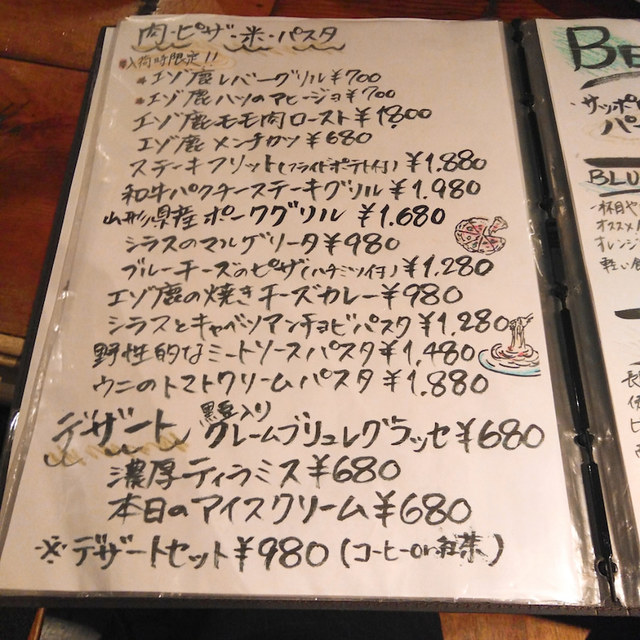 肉・ピザ・米・パスタ
入荷時限定!!
*エゾ鹿レバーグリル¥700
*エゾ鹿ハツのアヒージョ¥700
エゾ鹿モモ肉ロースト¥1800
エゾ鹿メンチカツ¥680
ステーキフリット(フライドポテト付)¥1.880
和牛パクチーステーキグリル¥1.980
山形県産ポークグリル ¥1.680
シラスのマルゲリータ¥980
ブルーチーズのピザ(ハチミツ付)¥1.280
エゾ鹿の焼きチーズカレー¥980
シラスとキャベツアンチョビパスタ¥1.280
野性的なミートソースパスタ¥1,480
ウニのトマトクリームパスタ¥1.880
デザート 黒豆入り
クレームブリュレグラッセ¥680
濃厚ティラミス¥680
本日のアイスクリーム¥680
※デザートセット¥980(コーヒーor紅茶)
BE
サッポ
パ
BLU
杯目や
オススメ
オレンジ
軽い